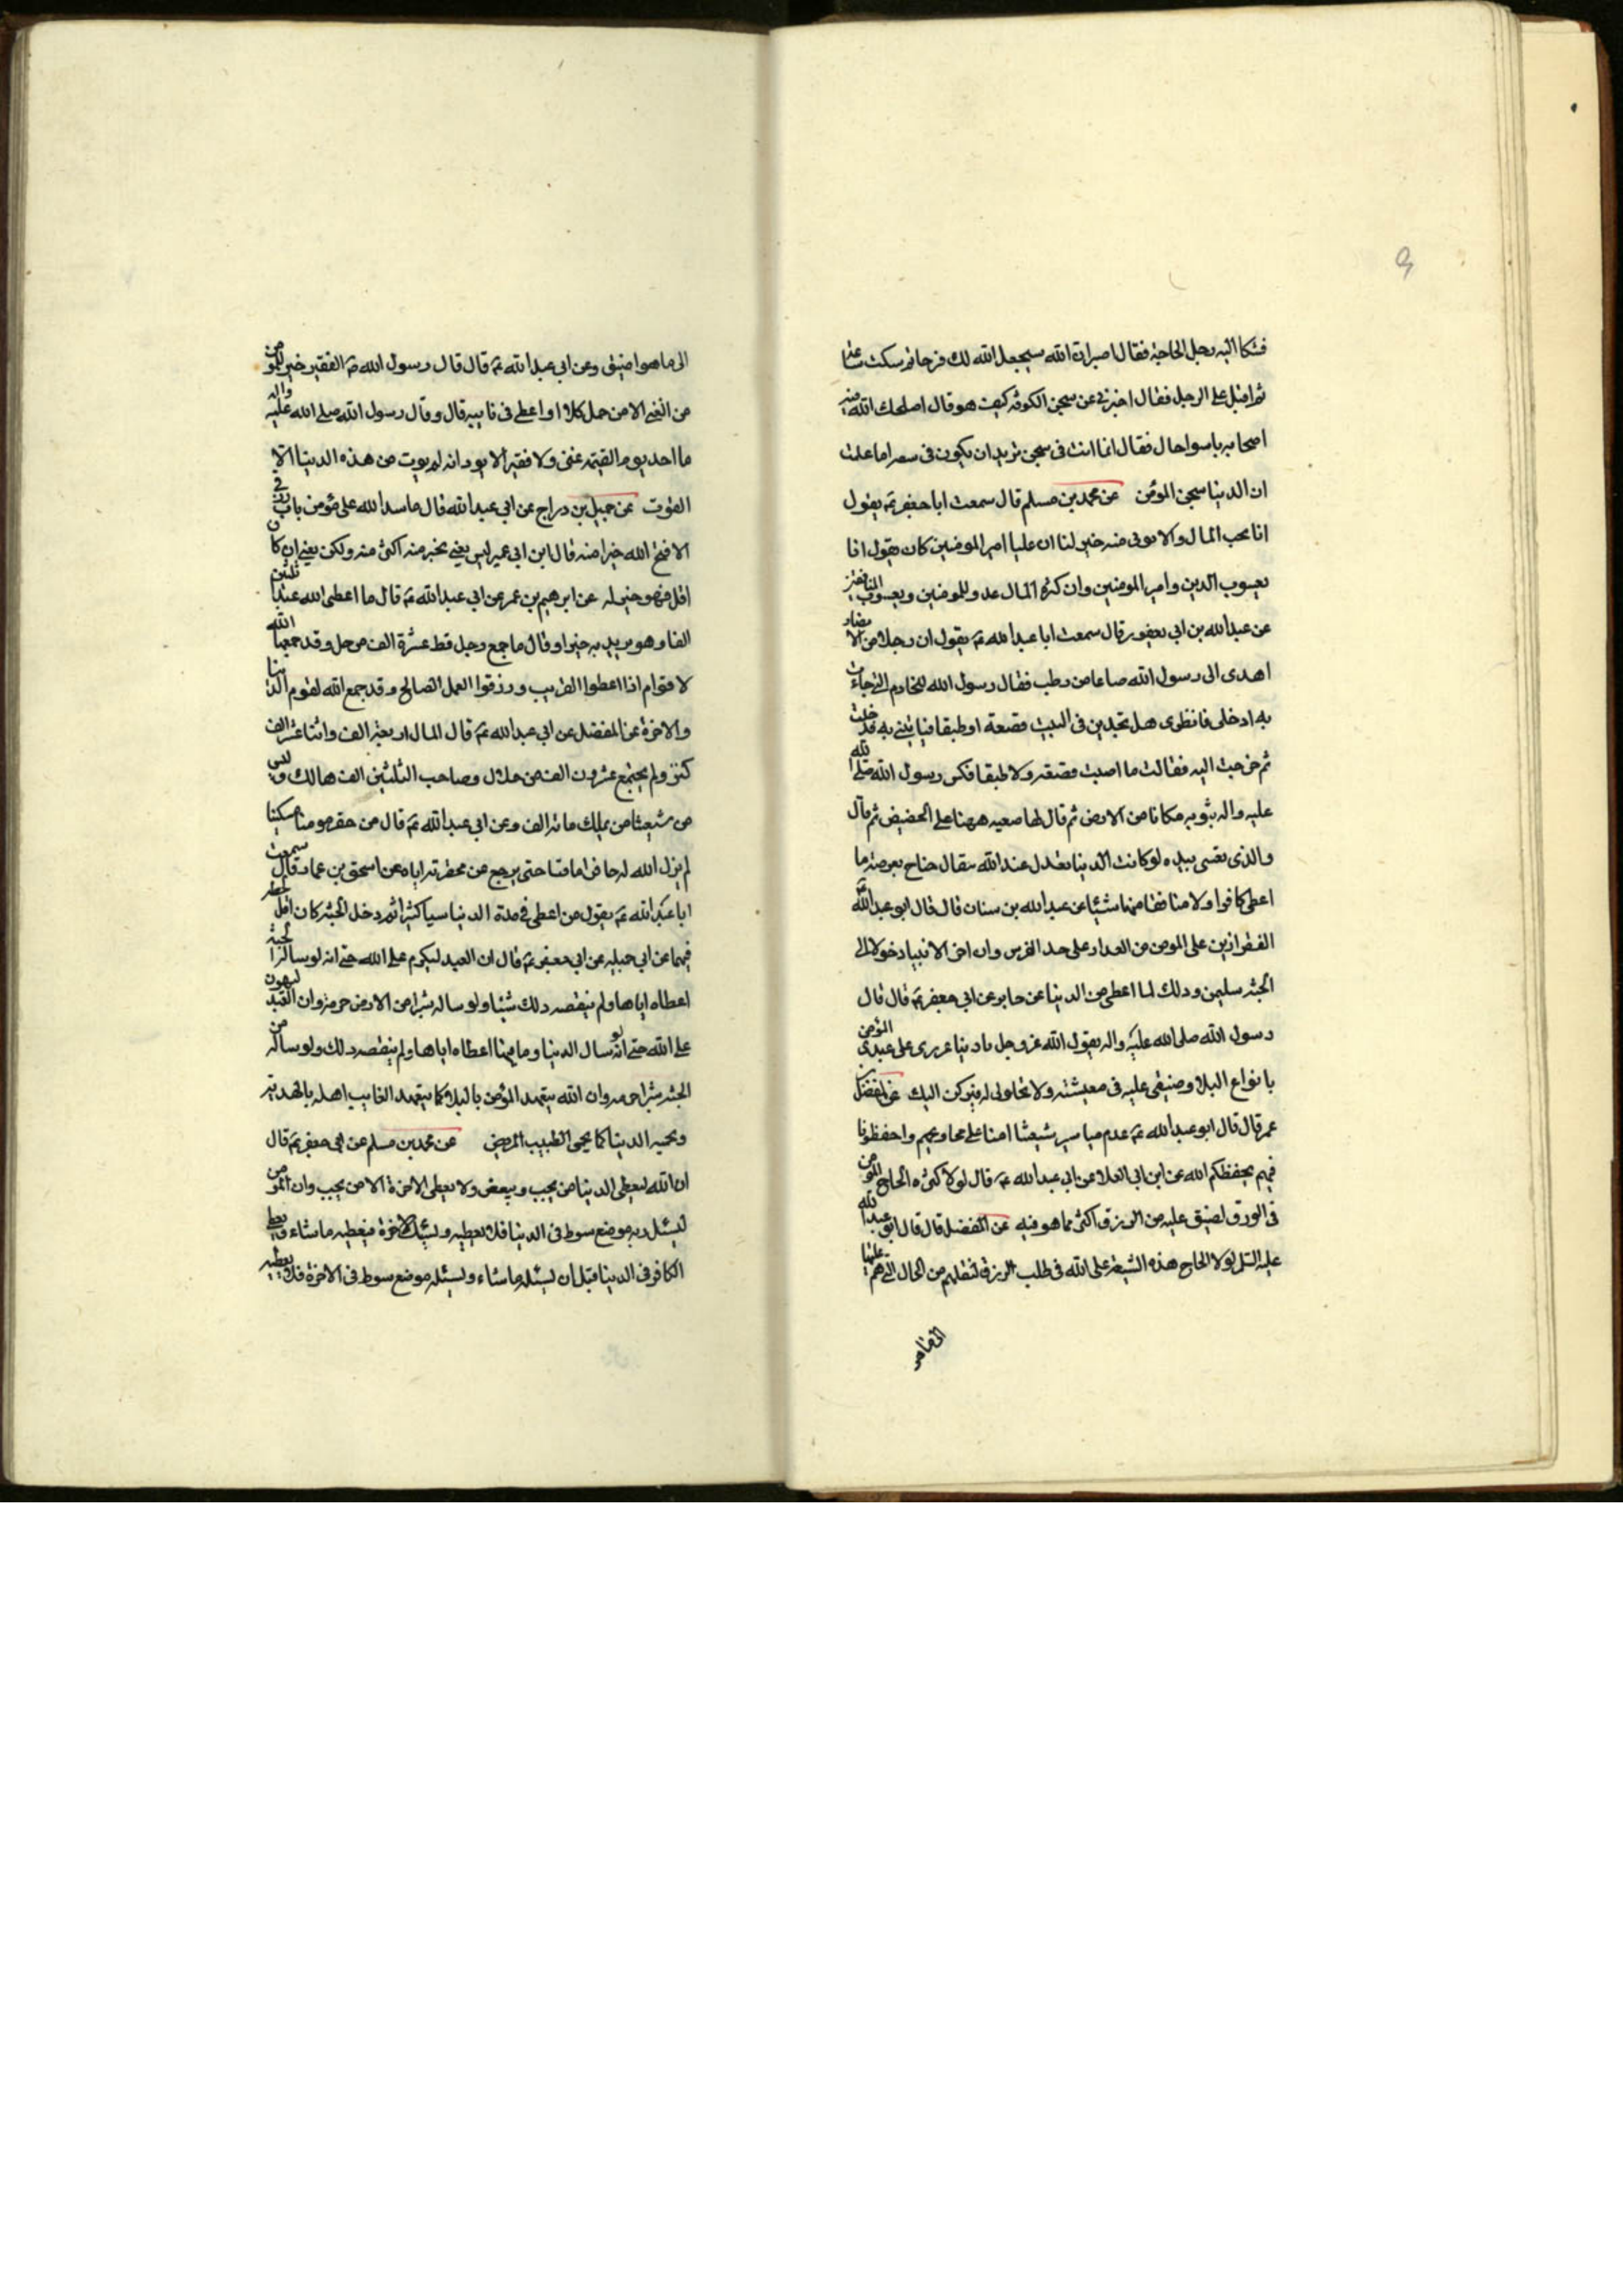 فشكا اليه رجل الحاجة فقال اصبر ان الله سيجعل الله لك فرجا ثم سكت ساعة
ثم اقبل على الرجل فقال اخبرني عن سجن الكوفة كيف هو قال اصلحك الله فيه
اصحابه باسوا حال فقال انما انت في سجن تريد ان يكون في سعه اما علمت
ان الدنيا سجن المؤمن عن محمد بن مسلم قال سمعت ابا جعفر ع يقول
انا نحب المال والا نوتى منه خير لنا ان عليا امير المومنين كان يقول انا
يعسوب الدين وامير المومنين وان كثرة المال عدو للمومنين ويعسوب المنافقين
عن عبد الله بن ابي يعفور قال سمعت ابا عبد الله ع يقول ان رجلا من الانصار
اهدى الى رسول الله صاعا من رطب فقال رسول الله للخادم التي جاءت
به ادخلي فانظري هل تجدين في البيت قصعة او طبقا فياتيني به فدخلت
ثم خرجت اليه فقالت ما اصبت قصعه ولا طبقا فكس رسول الله صلى الله
عليه واله بثوبه مكانا من الارض ثم قال لها صعيه ههنا على الحضيض ثم قال
والذي نفسي بيده لو كانت الدنيا تعدل عند الله مثقال جناح بعوضه ما
اعطى كافرا ولا منافقا منها شيئا عن عبد الله بن سنان قال قال ابو عبد الله ع
الفقر ازين على المومن من العدار على خد الفرس وان اخر الانبيا دخولا الى
الجنة سليمن وذلك لما اعطى من الدنيا عن جابر عن ابي جعفر ع قال قال
رسول الله صلى الله عليه واله يقول الله عز وجل يا دنيا مرري على عبدي المؤمن
بانواع البلا وضيقي عليه في معيشته ولا تحلولي له فيركن اليك عن المفضل بن
عمر قال قال ابو عبد الله ع عدم مياسير شيعتنا امنا على محاويجهم واحفظونا
فيهم يحفظكم الله عن ابن ابي العلا عن ابي عبد الله ع قال لولا كثرة الحاح المؤمن
في الورق لضيق عليه من الرزق اكثر مما هو فيه عن المفضل قال قال ابو عبد الله
عليه السلم لولا الحاح هذه الشيعة على الله في طلب الرزق لنقلهم من الحال التي هم عليها
الى ما هو اضيق وعن ابي عبد الله ع قال قال رسول الله ص الفقير خير للمؤمن
من الغني الا من حمل كلا او اعطى في نايبه قال وقال رسول الله صلى الله عليه واله
ما احد يوم القيمه غنى ولا فقير الا يود انه لم يوت من هذه الدنيا الا
القوت عن جميل بن دراج عن ابي عبد الله قال ما سد الله على مؤمن باب رزق
الا فتح الله خيرا منه قال ابن ابي عمير ليس يعني بخير منه اكثر منه ولكن يعني ان كان
اقل فهو خير له عن ابرهيم بن عمر عن ابي عبد الله ع قال ما اعطى الله عبدا ثلثين
الفا وهو يريد به خيرا وقال ما جمع رجل قط عشرة الف من حل وقد جمعها الله
لاقوام اذا اعطوا القريب ورزقوا العمل الصالح وقد جمع الله لقوم الدنيا
والاخرة عن المفضل عن ابي عبد الله ع قال المال اربعة الف واثنا عشر الف
كنز ولم يجتمع عشرون الف من حلال وصاحب الثلثين الف هالك وليس
من شيعتنا من يملك مائة الف وعن ابي عبد الله ع قال من حقر مومنا مسكينا
لم يزل الله له حاقرا ماقتا حتى يرجع عن محقرته اياه عن اسحق بن عمار قال سمعت
ابا عبد الله ع يقول من اعطى في مدة الدنيا سيا كثيرا ثم دخل الجنة كان اقل لحظه
فيها عن ابي جميله عن ابي جعفر ع قال ان العبد ليكرم على الله حتى انه لو ساله الجنة
اعطاه اياها ولم ينقصه ذلك شيئا ولو ساله شبرا من الارض حرمه وان العبد ليهون
على الله حتى انه لو سال الدنيا وما فيها اعطاه اياها ولم ينقصه ذلك ولو ساله من
الجنة شبرا حرمه وان الله يتعهد المؤمن بالبلا كما يتعهد الغايب اهله بالهديه
ويحميه الدنيا كما يحمى الطبيب المريض عن محمد بن مسلم عن ابي جعفر ع قال
ان الله ليعطي الدنيا من يحب ويبغض ولا يعطي الاخرة الا من يحب وان المؤمن
ليسئل ربه موضع سوط في الدنيا فلا يعطيه ويسئله الاخرة فيعطيه ما شاء ويعطي
الكافر في الدنيا قبل ان يسئله ما شاء ويسئله موضع سوط في الاخرة فلا يعطيه